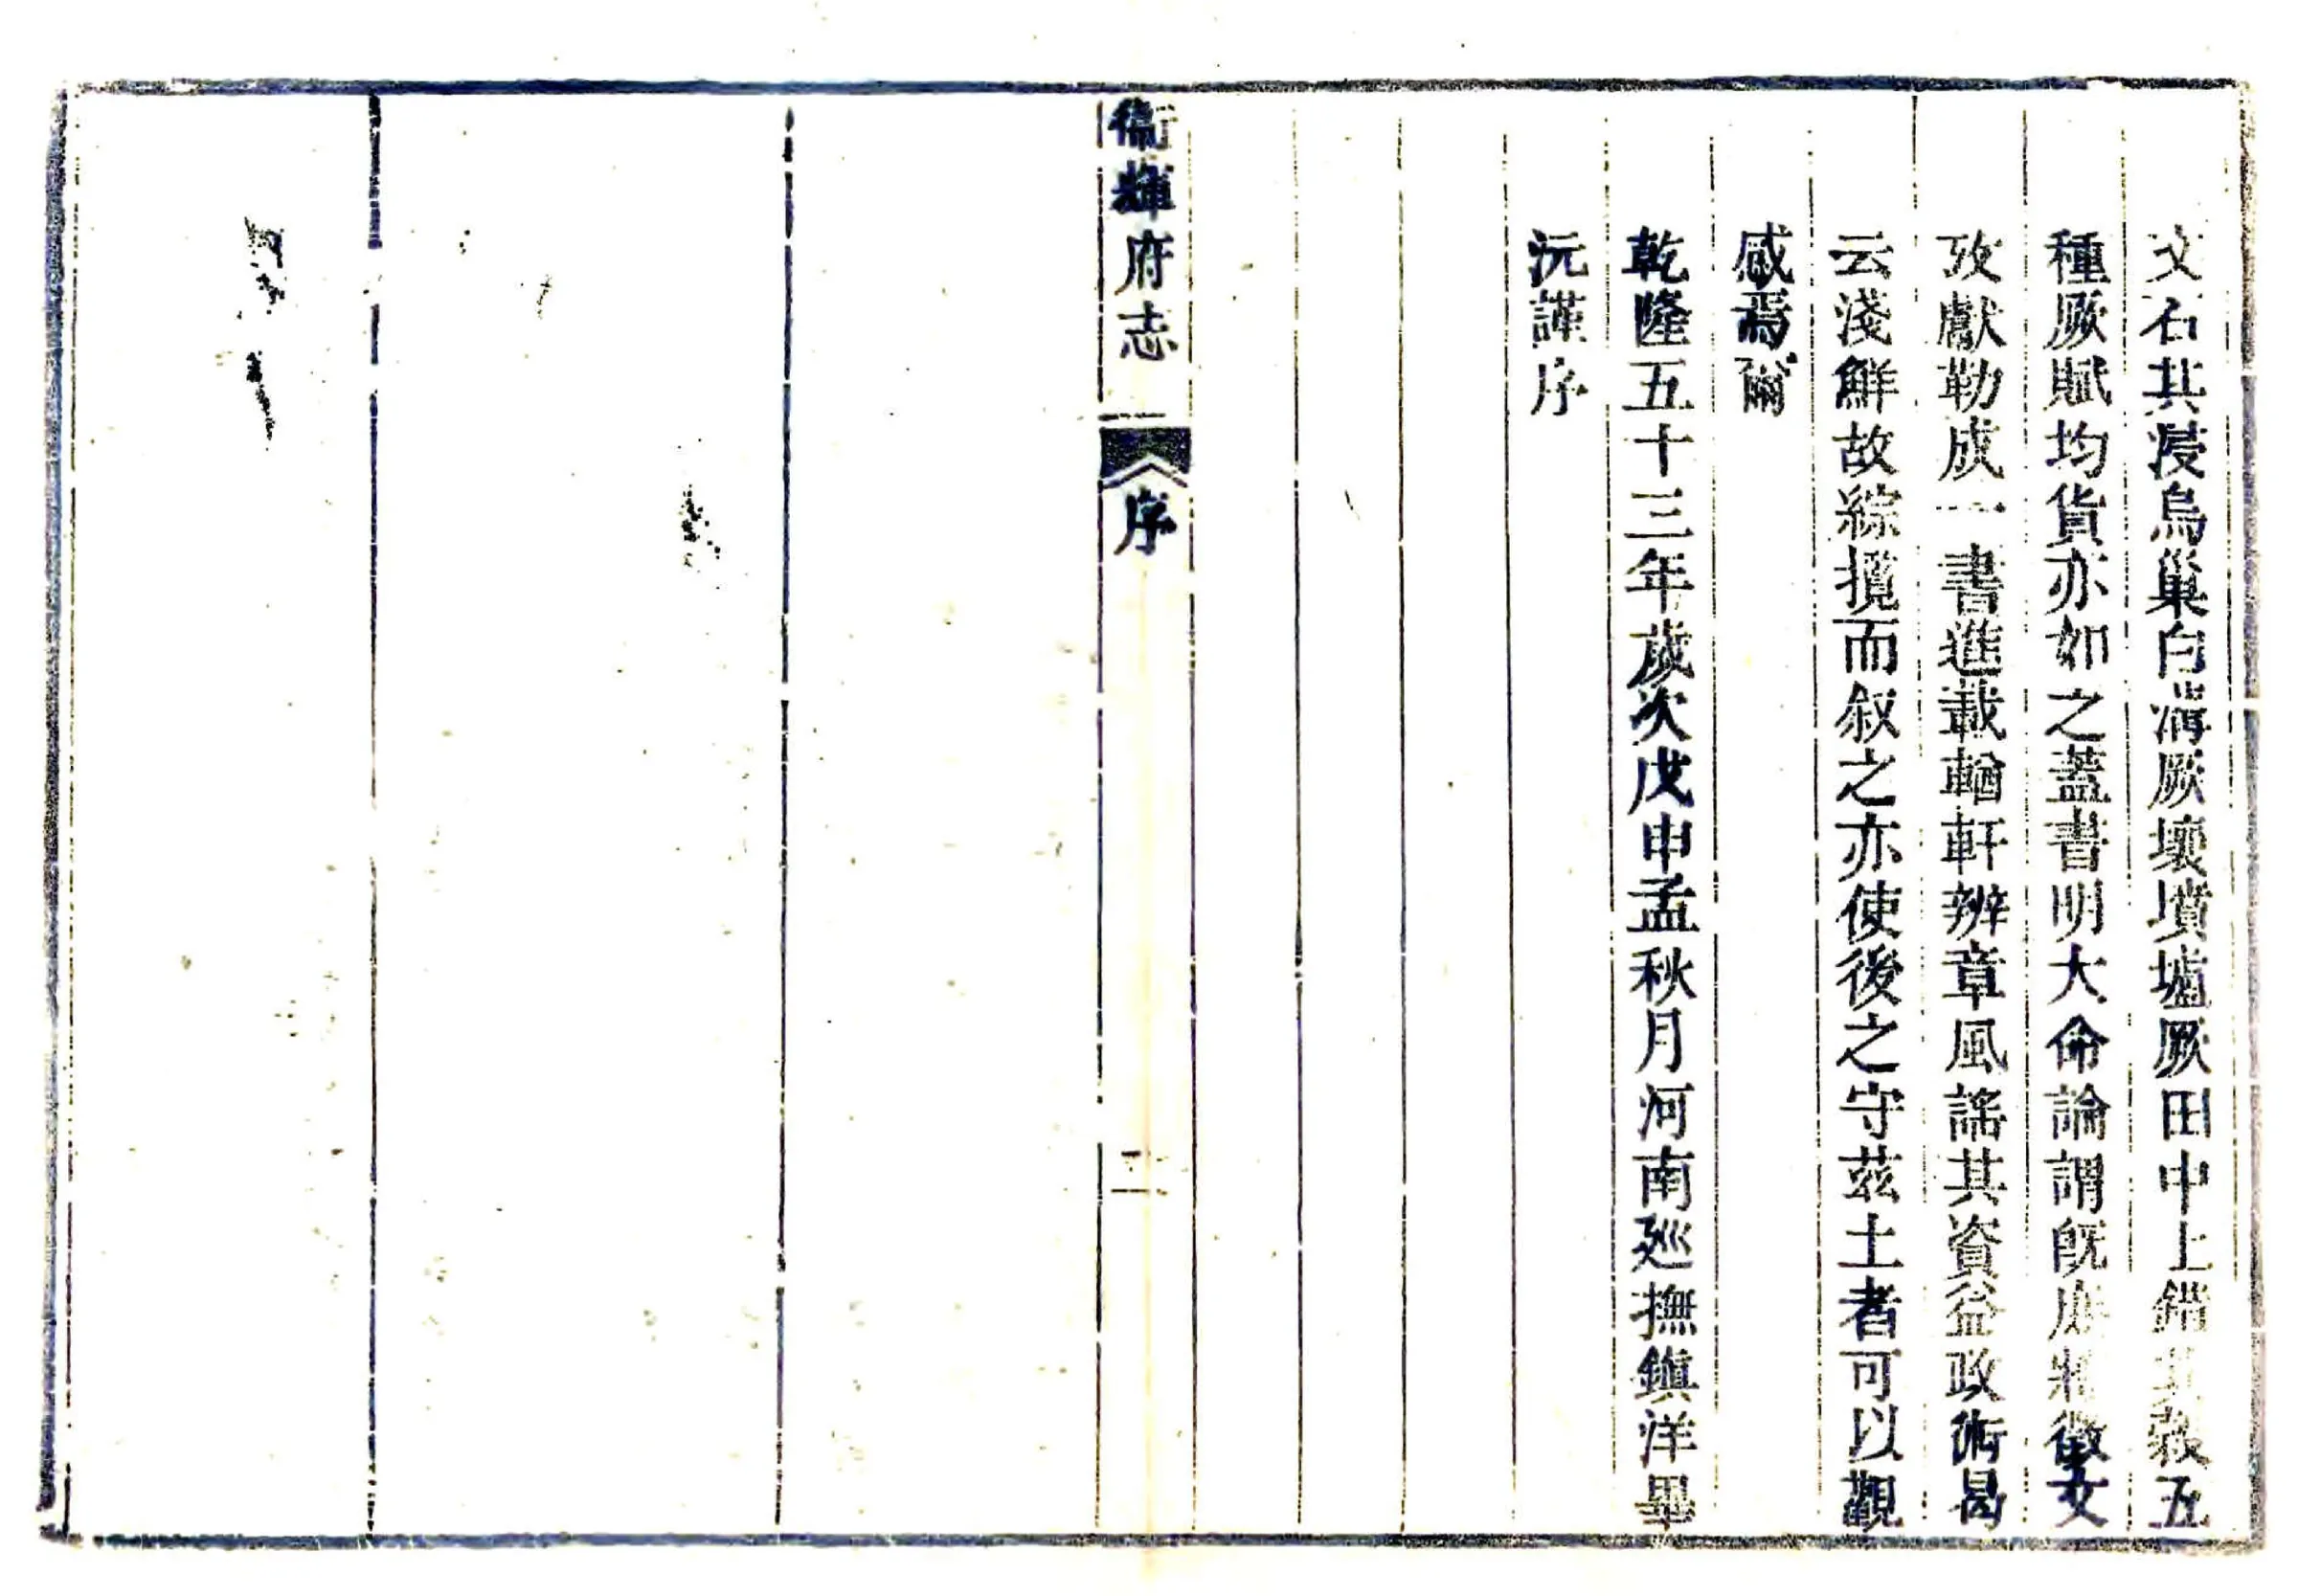 文石其浸烏巢白溝厥壤墳壚厥田中上錯其穀五
種厥賦均貨亦如之蓋書明大命論謂旣庶將徵文
攷獻勒成一書進載輶軒辨章風謠其資益政術曷
云淺鮮故綜攬而叙之亦使後之守茲土者可以觀
感焉爾
乾隆五十三年歲次戊申孟秋月河南廵撫鎭洋畢
沅謹序
衞輝府志
序
二